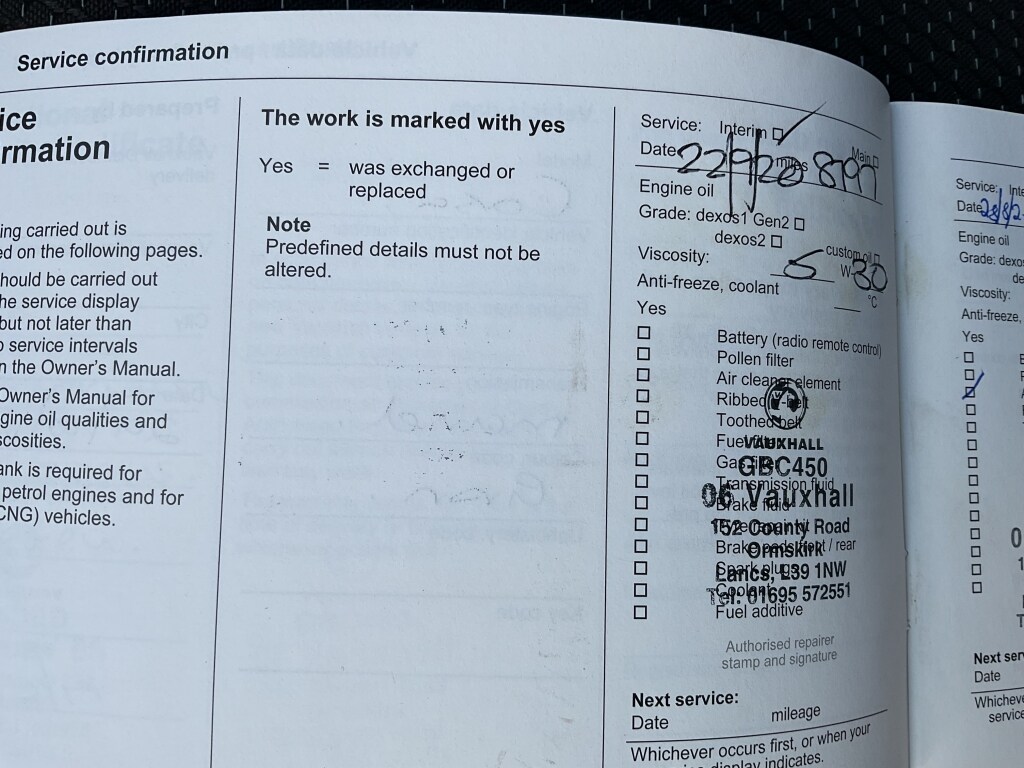 Service confirmation
ice
rmation
ing carried out is
ed on the following pages.
hould be carried out
he service display
but not later than
o service intervals
n the Owner's Manual.
Owner's Manual for
gine oil qualities and
scosities.
ank is required for
petrol engines and for
CNG) vehicles.
The work is marked with yes
Yes = was exchanged or
replaced
Note
Predefined details must not be
altered.
Service: Interim Main
Date 22/9/20 miles 8797
Engine oil
Grade: dexos1 Gen2
dexos2 custom oil
Viscosity: 5 W-30
Anti-freeze, coolant °C
Yes
Battery (radio remote control)
Pollen filter
Air cleaner element
Ribbed V-belt
Toothed belt
Fuel filter
VAUXHALL
Gas filter
GBC450
Transmission fluid
06 Vauxhall
Brake fluid
152 County Road
Brake pads front / rear
Ormskirk
Spark plugs
Lancs, L39 1NW
Coolant
Tel: 01695 572551
Fuel additive
Authorised repairer
stamp and signature
Next service:
Date mileage
Whichever occurs first, or when your
display indicates.
Service: Inte
Date 28/8/2
Engine oil
Grade: dexos
de
Viscosity:
Anti-freeze,
Yes
Next ser
Date
Whicheve
service